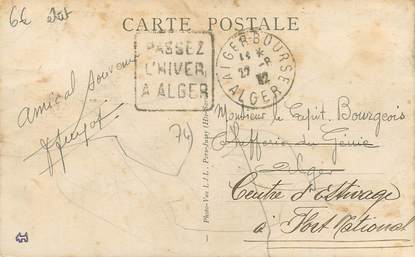 6€ état
CARTE POSTALE
PASSEZ
L'HIVER
A ALGER
ALGER BOURSE
ALGER
Amical souvenir
74
Monsieur le Capit. Bourgeois
Chefferie du Génie
Alger
Centre d'Estivage
à Fort National